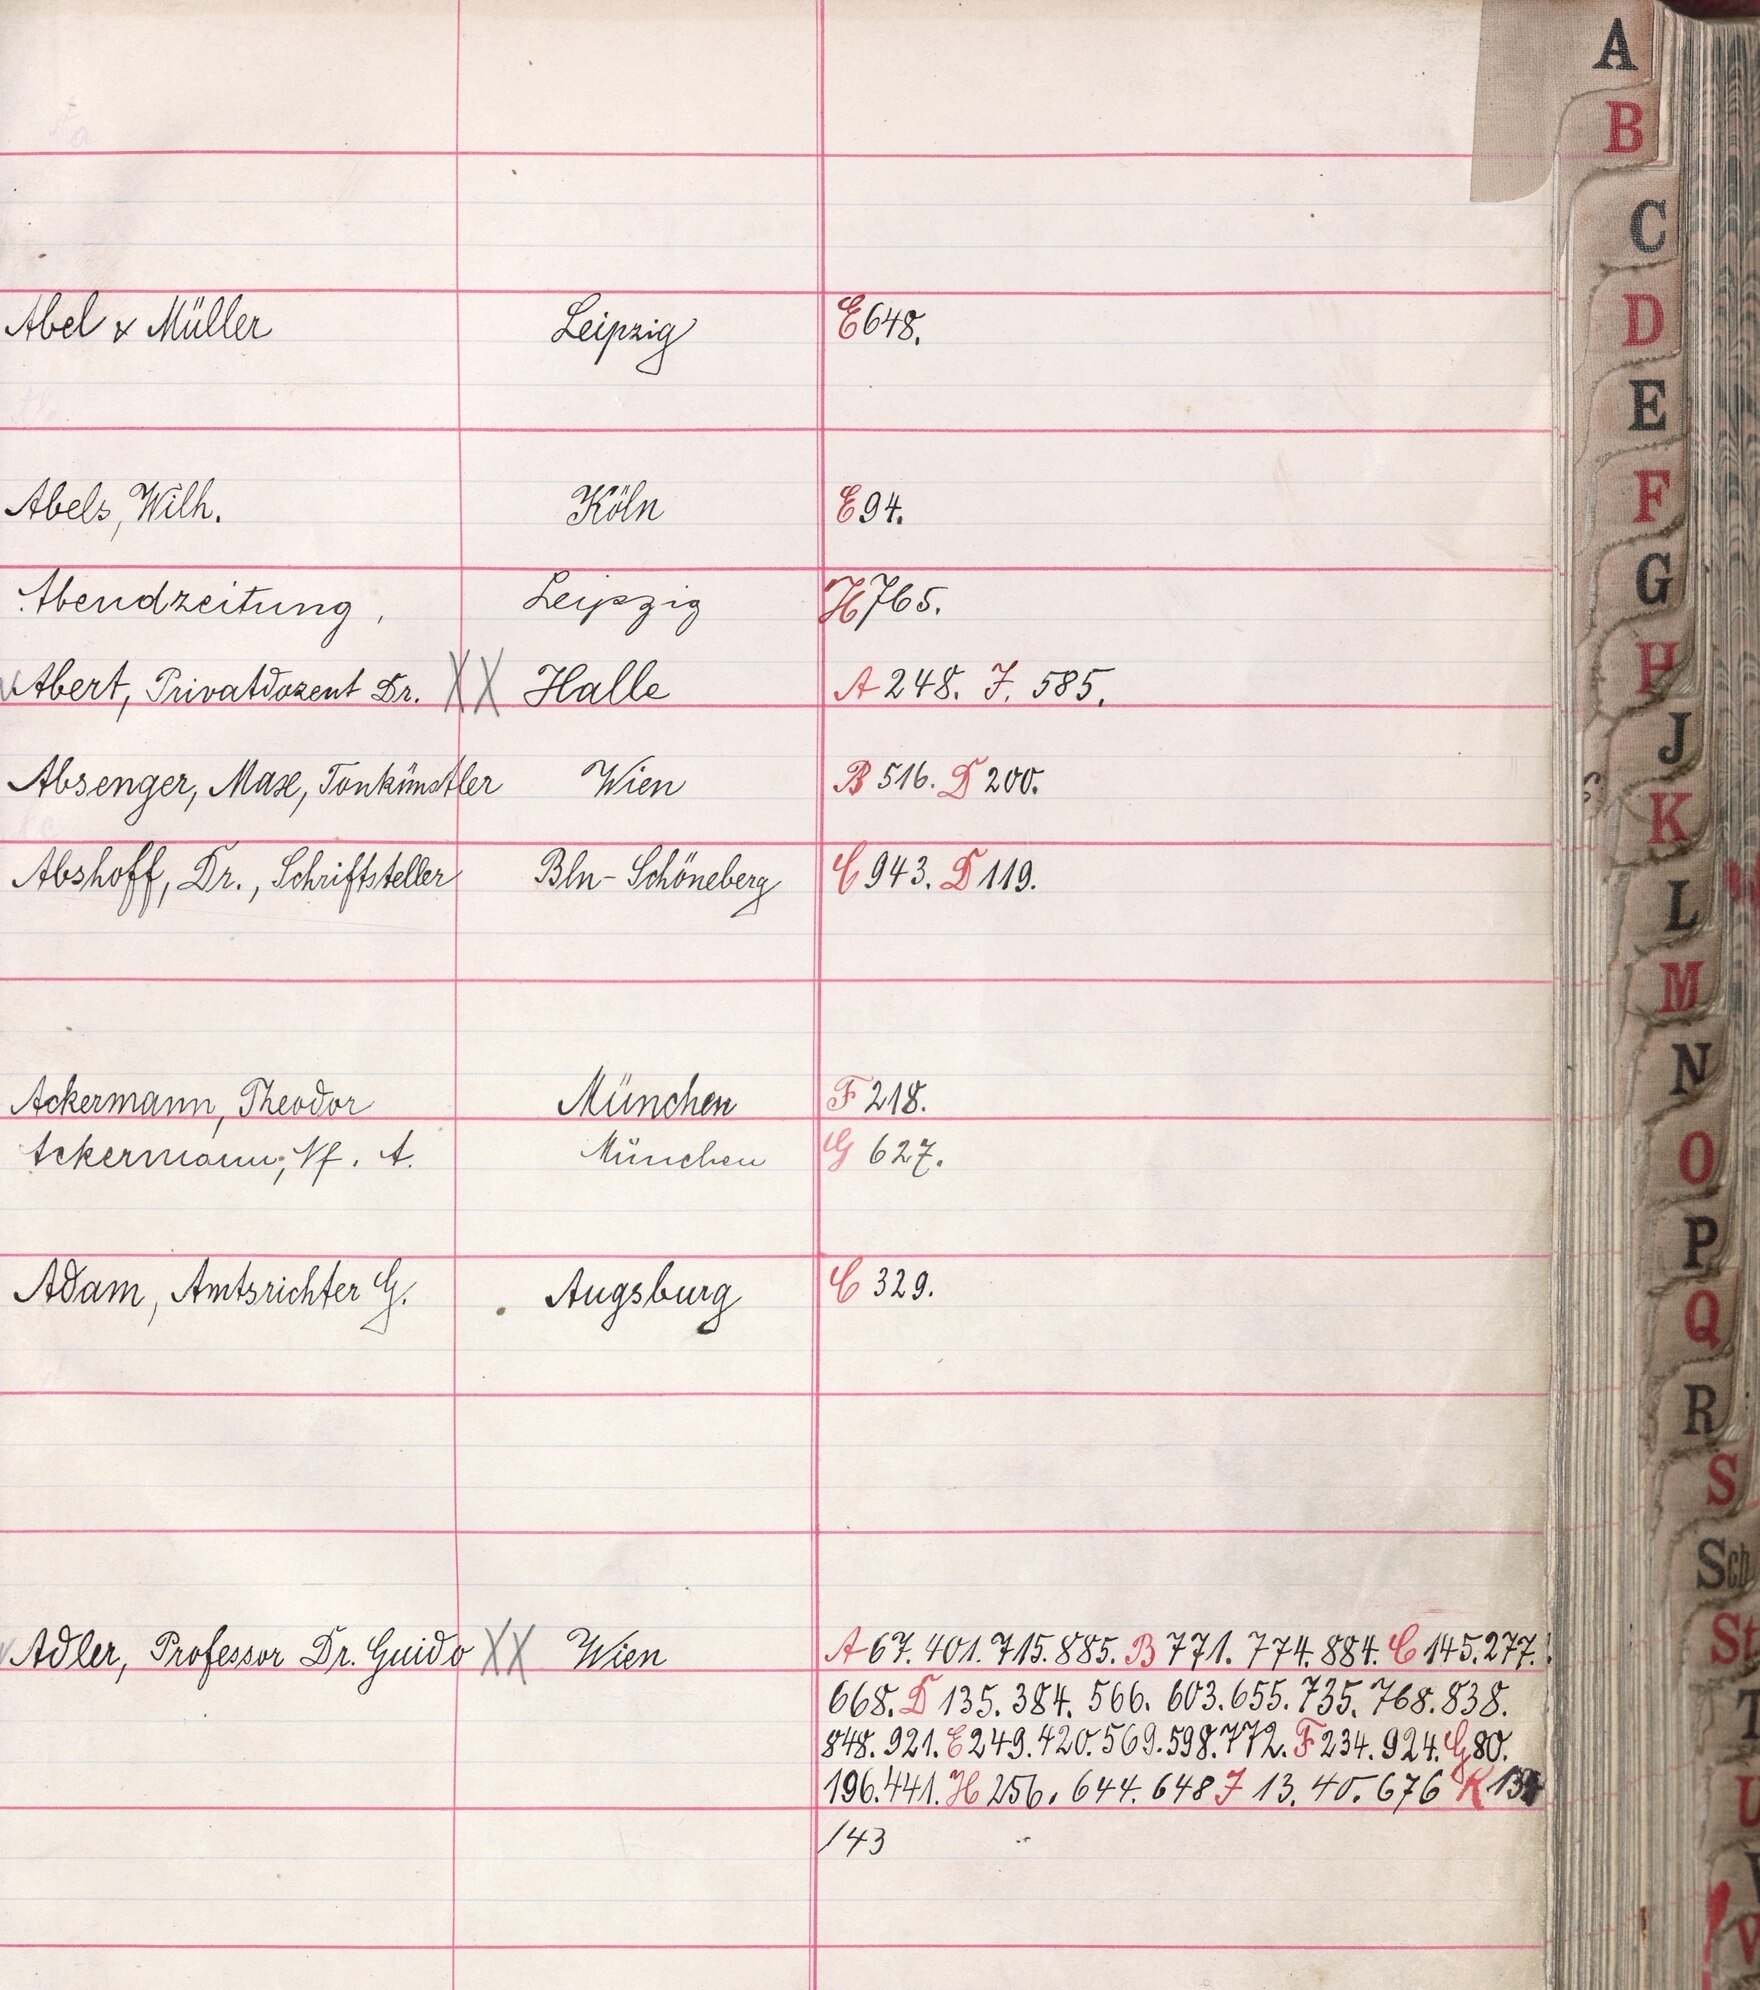 A
B
C
D
E
F
G
H
J
K
L
M
N
O
P
Q
R
S
Sch
St
Abel & Müller Leipzig E 648.
Abels, Wilh. Köln E 94.
Abendzeitung, Leipzig H 765.
Abert, Privatdozent Dr. XX Halle A 248. J. 585.
Absenger, Max, Tonkünstler Wien B 516. D 200.
Abshoff, Dr., Schriftsteller Bln-Schöneberg C 943. D 119.
Ackermann, Theodor München F 218.
Ackermann, Nf. A. München G 627.
Adam, Amtsrichter G. Augsburg C 329.
Adler, Professor Dr. Guido XX Wien A 67. 401. 715. 885. B 771. 774. 884. C 145. 277.
668. D 135. 384. 566. 603. 655. 735. 768. 838.
848. 921. E 249. 420. 569. 598. 772. F 234. 924. G 80.
196. 441. H 256. 644. 648 J 13. 40. 676 K
143